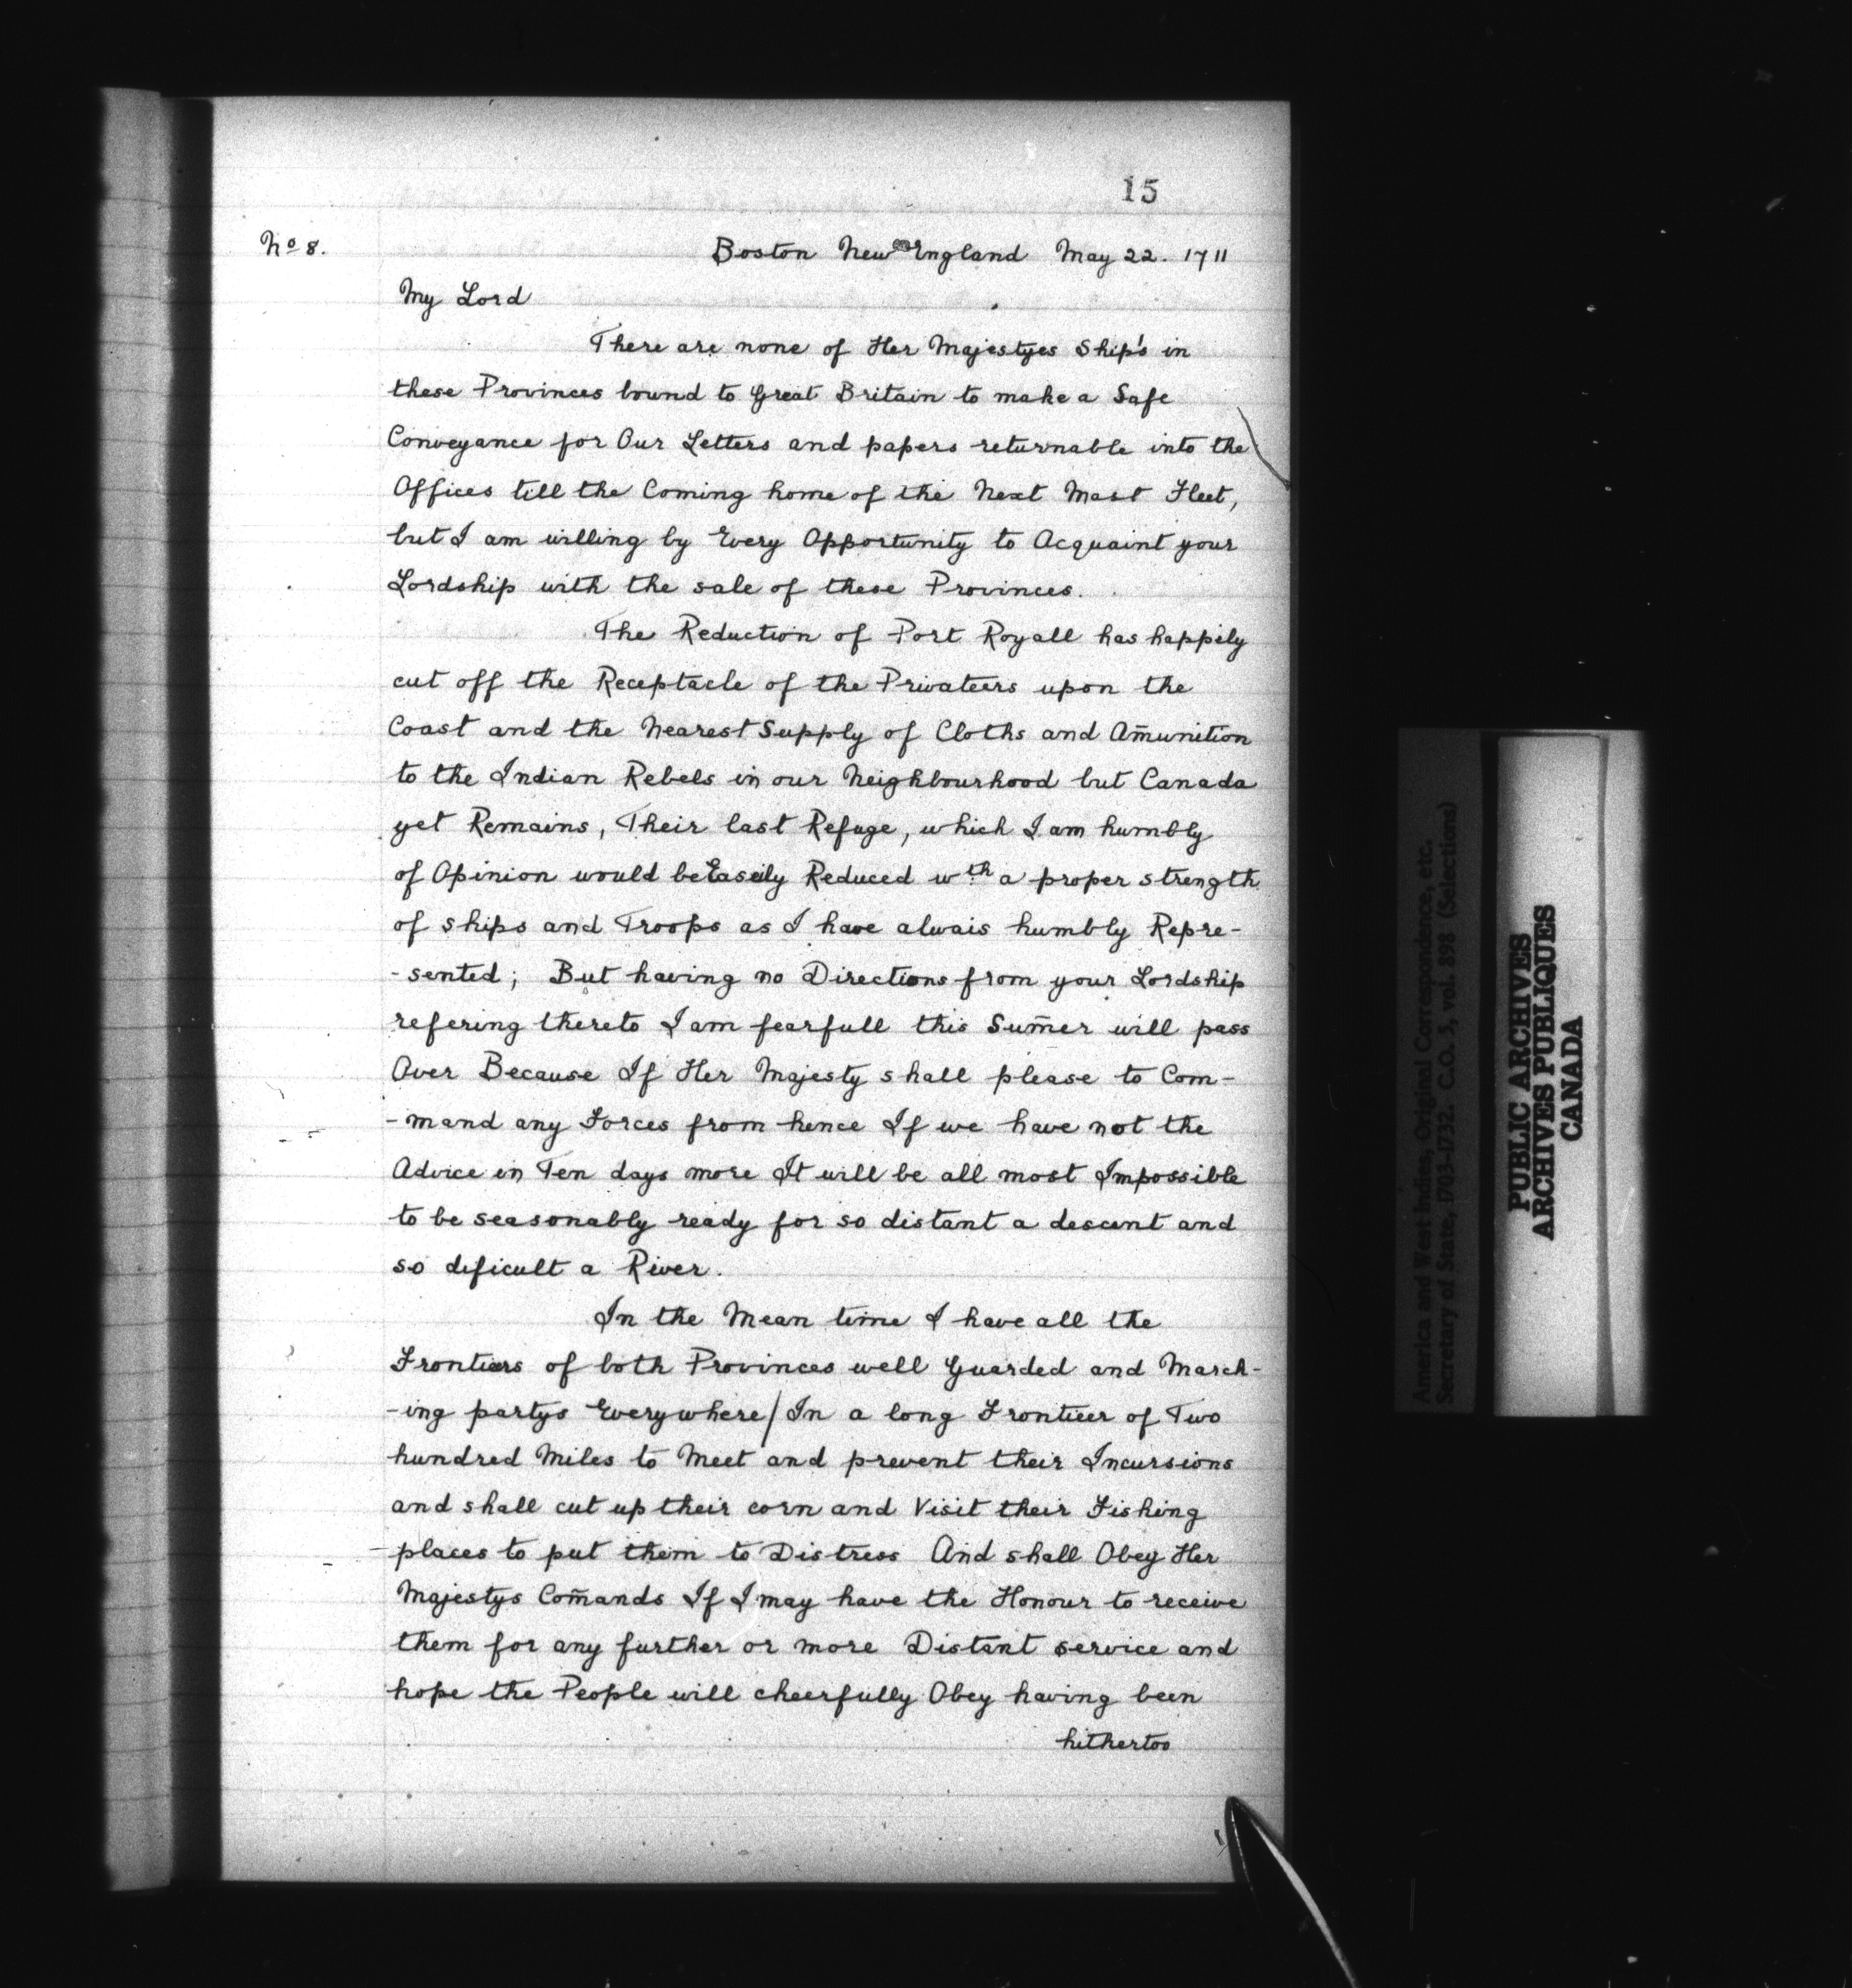 15
No 8.
Boston New England May 22. 1711
My Lord
There are none of Her Majestyes Ship's in
these Provinces bound to Great Britain to make a Safe
Conveyance for Our Letters and papers returnable into the
Offices till the Coming home of the Next Mast Fleet,
but I am willing by Every Opportunity to Acquaint your
Lordship with the sale of these Provinces.
The Reduction of Port Royall has happily
cut off the Receptacle of the Privateers upon the
Coast and the Nearest Supply of Cloths and Am̄unition
to the Indian Rebels in our Neighbourhood but Canada
yet Remains, Their last Refuge, which I am humbly
of Opinion would be Easily Reduced wth a proper strength
of ships and Troops as I have alwais humbly Repre-
-sented; But having no Directions from your Lordship
refering thereto I am fearfull this Sum̄er will pass
Over Because If Her Majesty shall please to Com-
-mand any Forces from hence If we have not the
Advice in Ten days more It will be all most Impossible
to be seasonably ready for so distant a descent and
so dificult a River.
In the Mean time I have all the
Frontiers of both Provinces well Guarded and March-
-ing partys Everywhere/ In a long Frontier of Two
hundred Miles to Meet and prevent their Incursions
and shall cut up their corn and Visit their Fishing
places to put them to Distress And shall Obey Her
Majestys Com̄ands If I may have the Honour to receive
them for any further or more Distant service and
hope the People will cheerfully Obey having been
hithertoo
America and West Indies, Original Correspondence, etc.
Secretary of State, 1703-1732. C.O. 5, vol. 898 (Selections)
PUBLIC ARCHIVES
ARCHIVES PUBLIQUES
CANADA